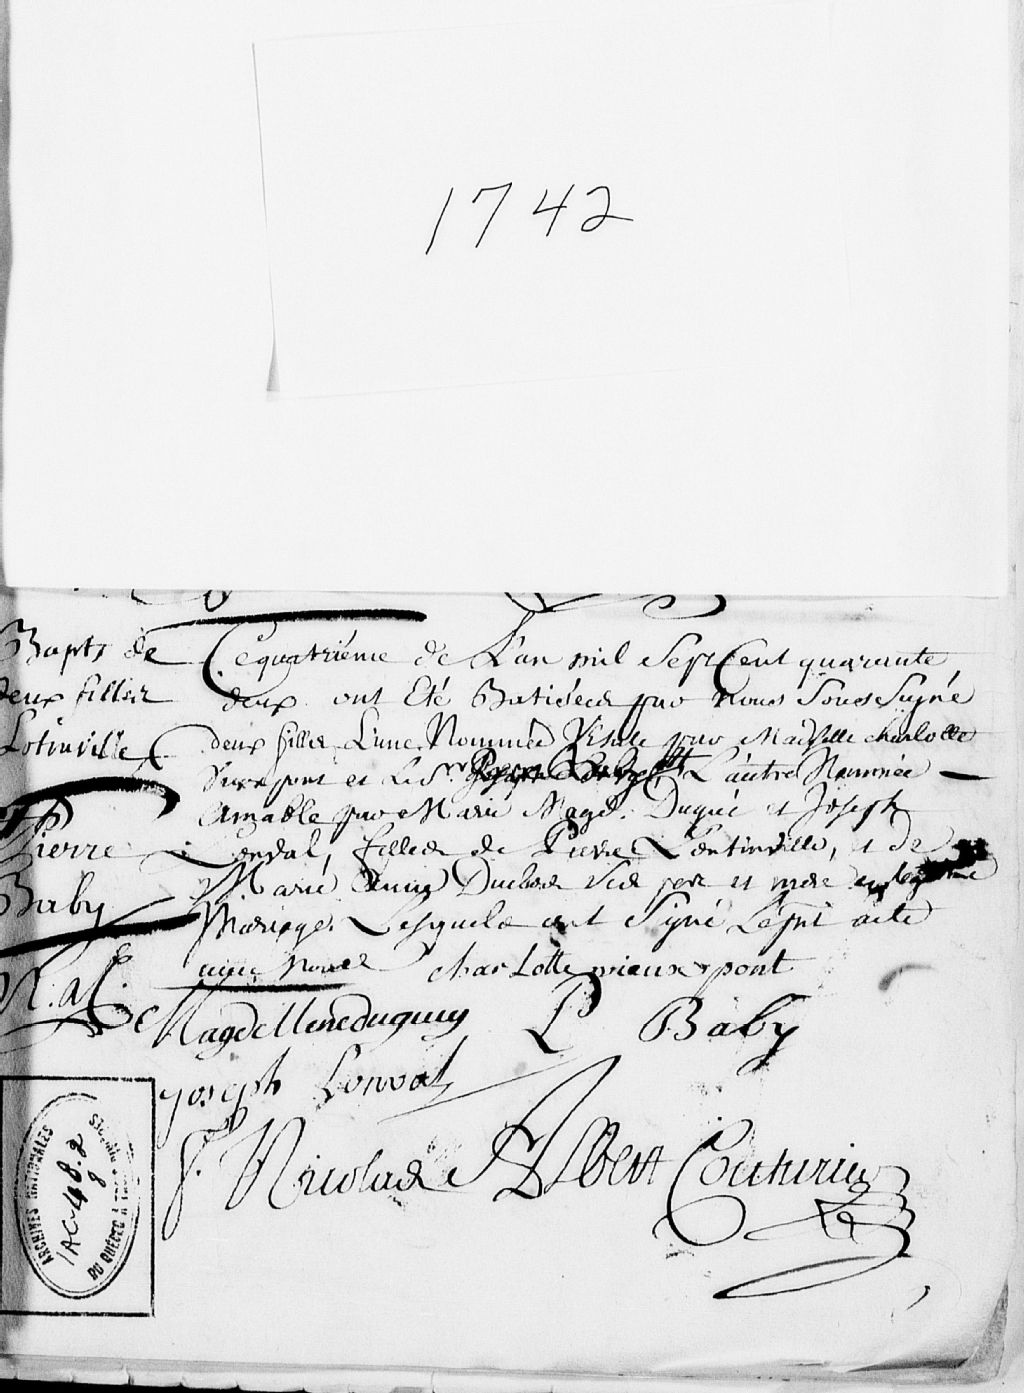 1742
Bapts de
deux filles
Lotinville
Pierre
Baby
N. al.
Ce quatriéme de L'an mil Sept Cent quarante
deux ont Eté Batisées par nous Sousigné
deux filles L'une Nommée par Madselle charlotte
et Le Sr. L'autre Nommée
Amable par Marie Magd. Duguéi et Joseph
Lonval, filles de Pierre Lontinville, et de
Marie ses pere et mere en legitime
Mariage. Lesquels ont Signé Le pnt acte
avec nous charLotte mieux pont
Magdellene duguey P Baby
joseph Lonval
f. Nicolas Albert Couturier
ARCHIVES NATIONALES
IAC-48.2
8
DU QUÉBEC À